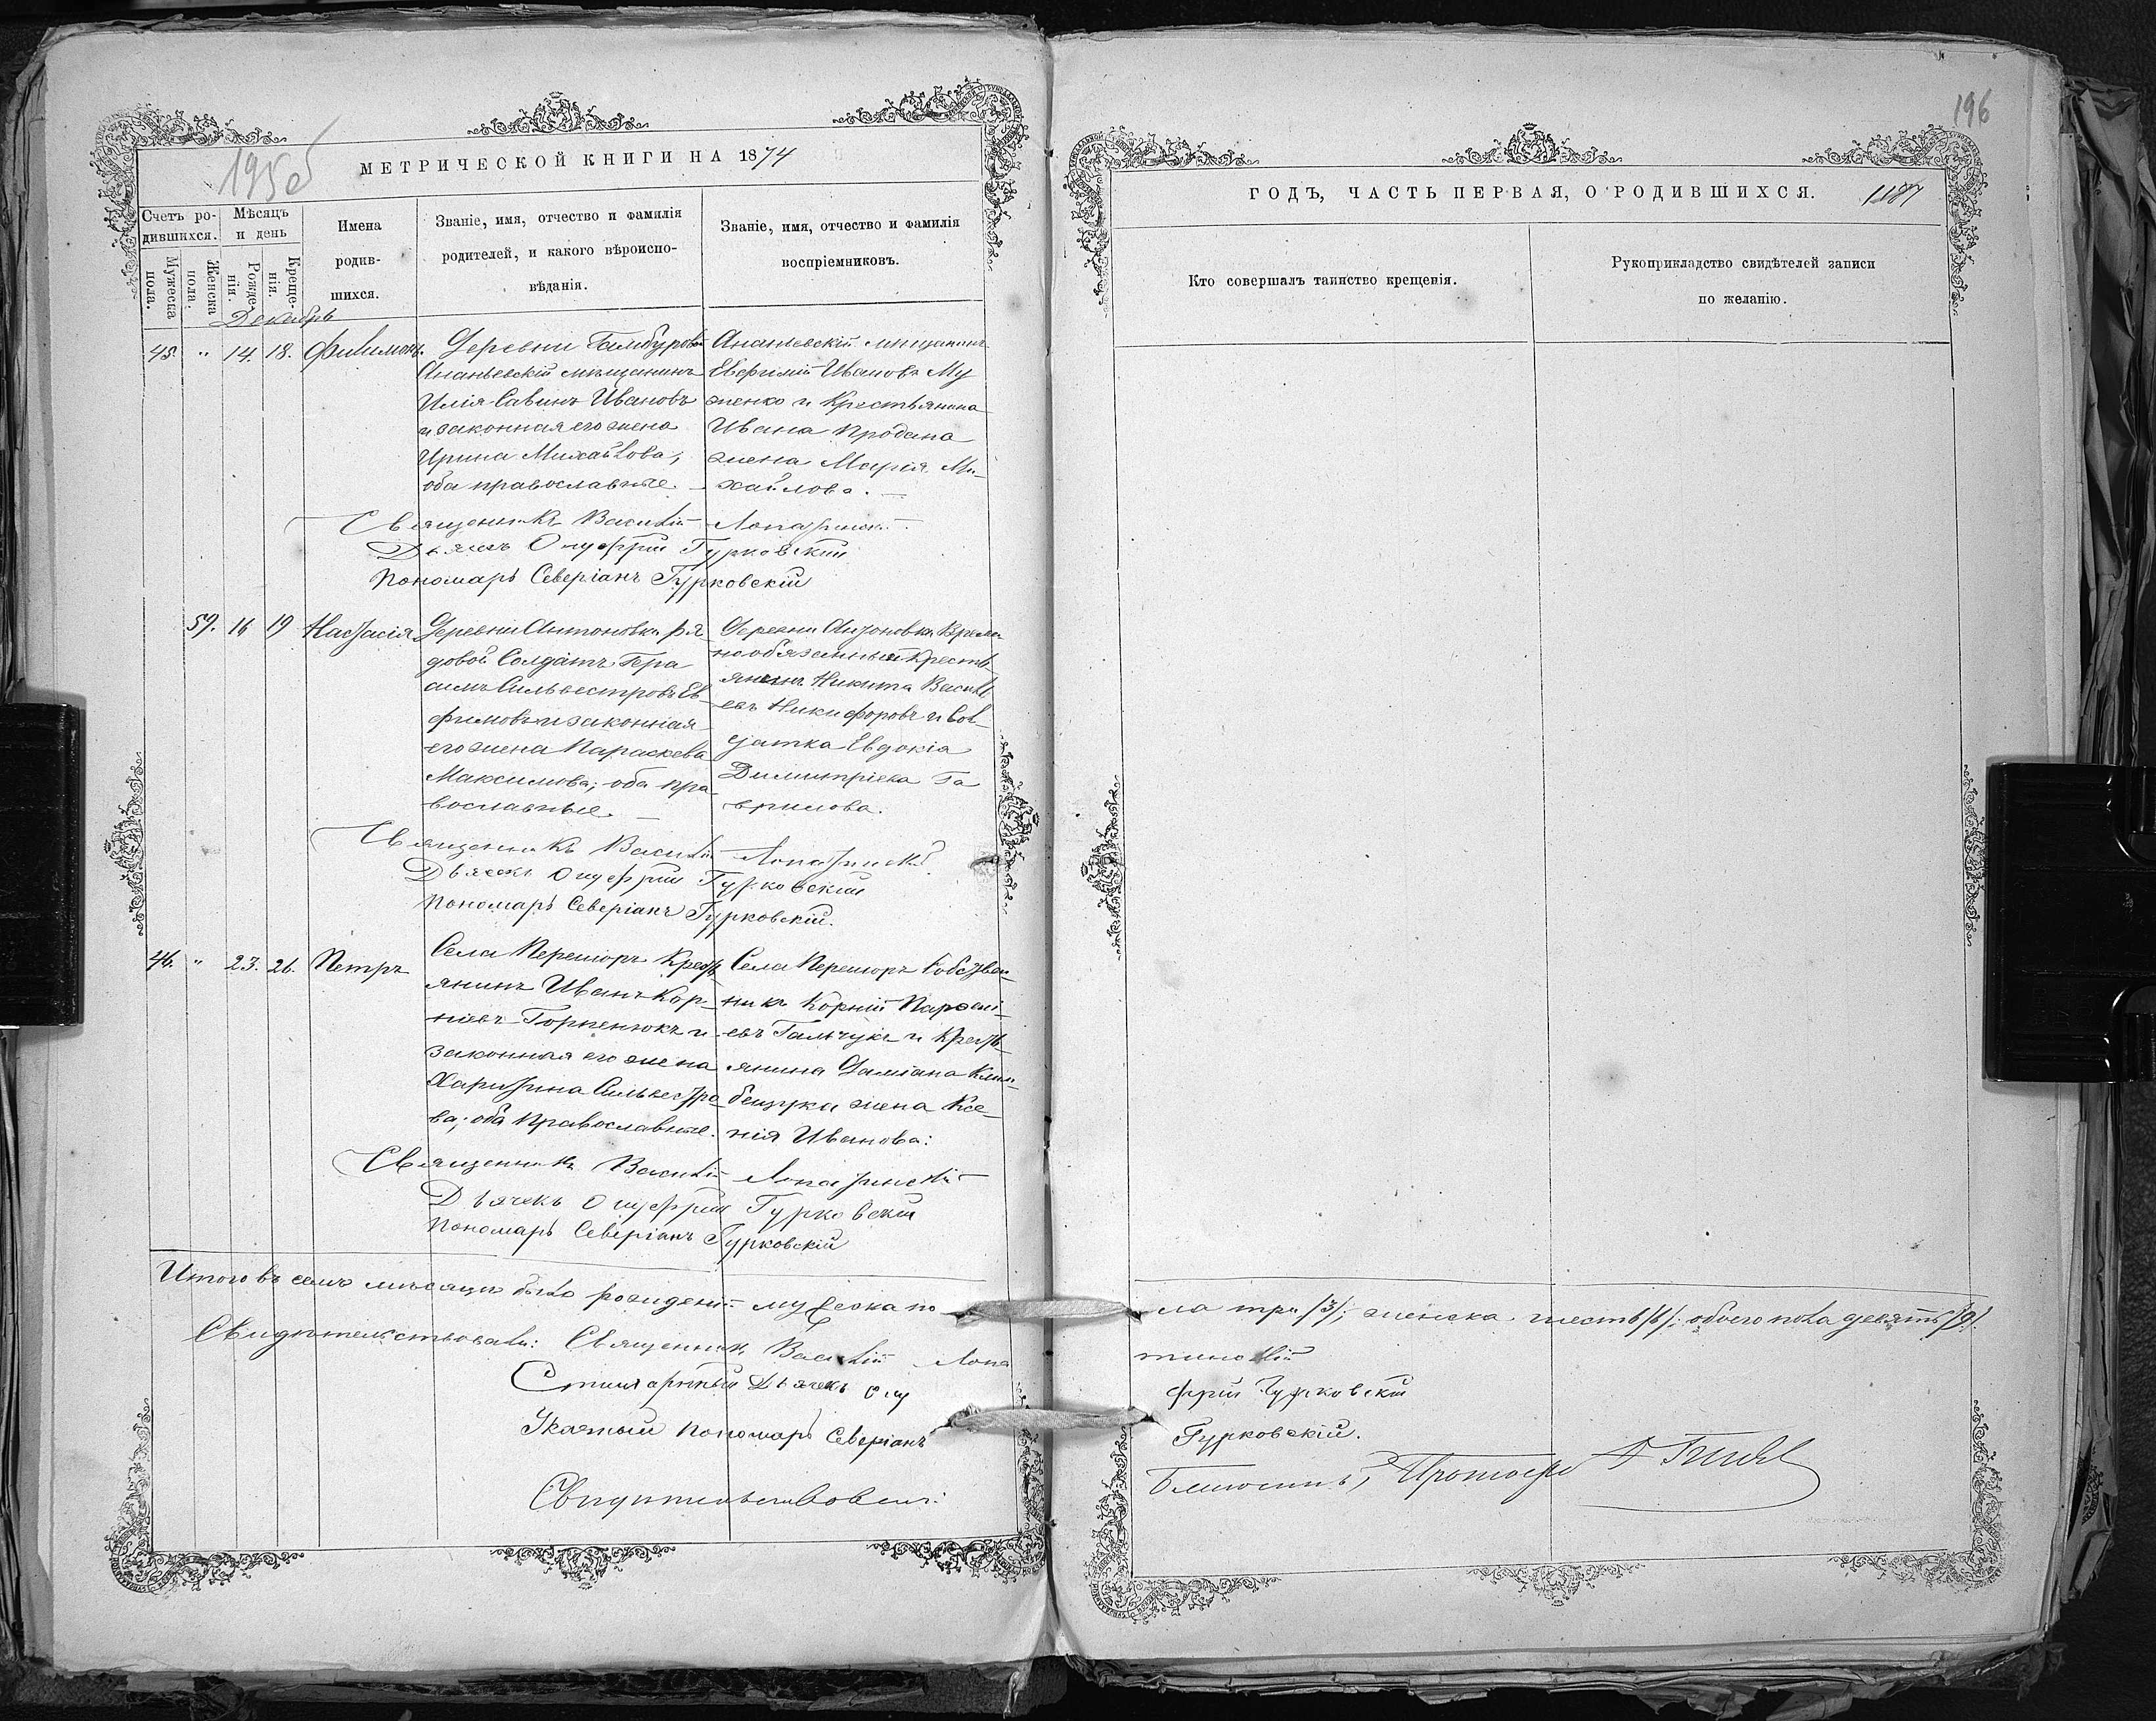 195 об
МЕТРИЧЕСКОЙ КНИГИ НА 1874
Счетъ ро-
дившихся.
Мужеска
пола.
Женска
пола.
Мѣсяцъ
и день
Рожде-
нія.
Креще-
нія.
Имена
родив-
шихся.
Званіе, имя, отчество и фамилія
родителей, и какого вѣроиспо-
вѣданія.
Званіе, имя, отчество и фамилія
воспріемниковъ.
Декабрь
45. " 14. 18. Филимонъ.
Деревни
Ананьевскій мѣщанинъ
Илія Савинъ Ивановъ
и законная его жена
Ирина Михайлова,
оба православные.
Ананьевскій мѣщанинъ
Евфимій Ивановъ Му
женко и Крестьянина
Ивана Продана
жена Марія Ми-
хайлова.
Священникъ Василій Лопатинскій
Дьячекъ Онуфрій Гурковскій
Пономарь Северіанъ Гурковскій
59. 16 19 Настасія
Деревни Антоновки ря
довой Солдатъ Гера
симъ Сильвестровъ Ев
фимовъ и законная
его жена Параскева
Максимова; оба пра-
вославные.
Деревни Антоновки Времен
нообязанный Кресть
янинъ Никита Василь
евъ Никифоровъ и Сол
датка Евдокія
Димитріева Га
врилова.
Священникъ Василій Лопатинскій
Дьячекъ Онуфрій Гурковскій
Пономарь Северіанъ Гурковскій.
46. " 23. 26. Петръ
Села Перешоръ Кресть
янинъ Иванъ Кор-
ніевъ и
законная его жена
Харитина Сильвестро
ва; оба Православные.
Села Перешоръ Собствен-
никъ Корній
евъ Гальчукъ и Кресть-
янина Даміана Клим-
бещука жена Ксе-
нія Иванова:
Священникъ Василій Лопатинскій
Дьячекъ Онуфрій Гурковскій
Пономарь Северіанъ Гурковскій
Итого въ семъ мѣсяцѣ было рожденій мужеска по
Свидѣтельствовали: Священникъ Василій Лопа
Стихарный Дьячекъ Ону
Указный Пономарь Северіанъ
Свидѣтельствовалъ:
196
ГОДЪ, ЧАСТЬ ПЕРВАЯ, О РОДИВШИХСЯ.
Кто совершалъ таинство крещенія.
Рукоприкладство свидѣтелей записи
по желанію.
ла три /3/; женска шесть /6/; обоего пола девять /9/.
тинскій
фрій Гурковскій
Гурковскій.